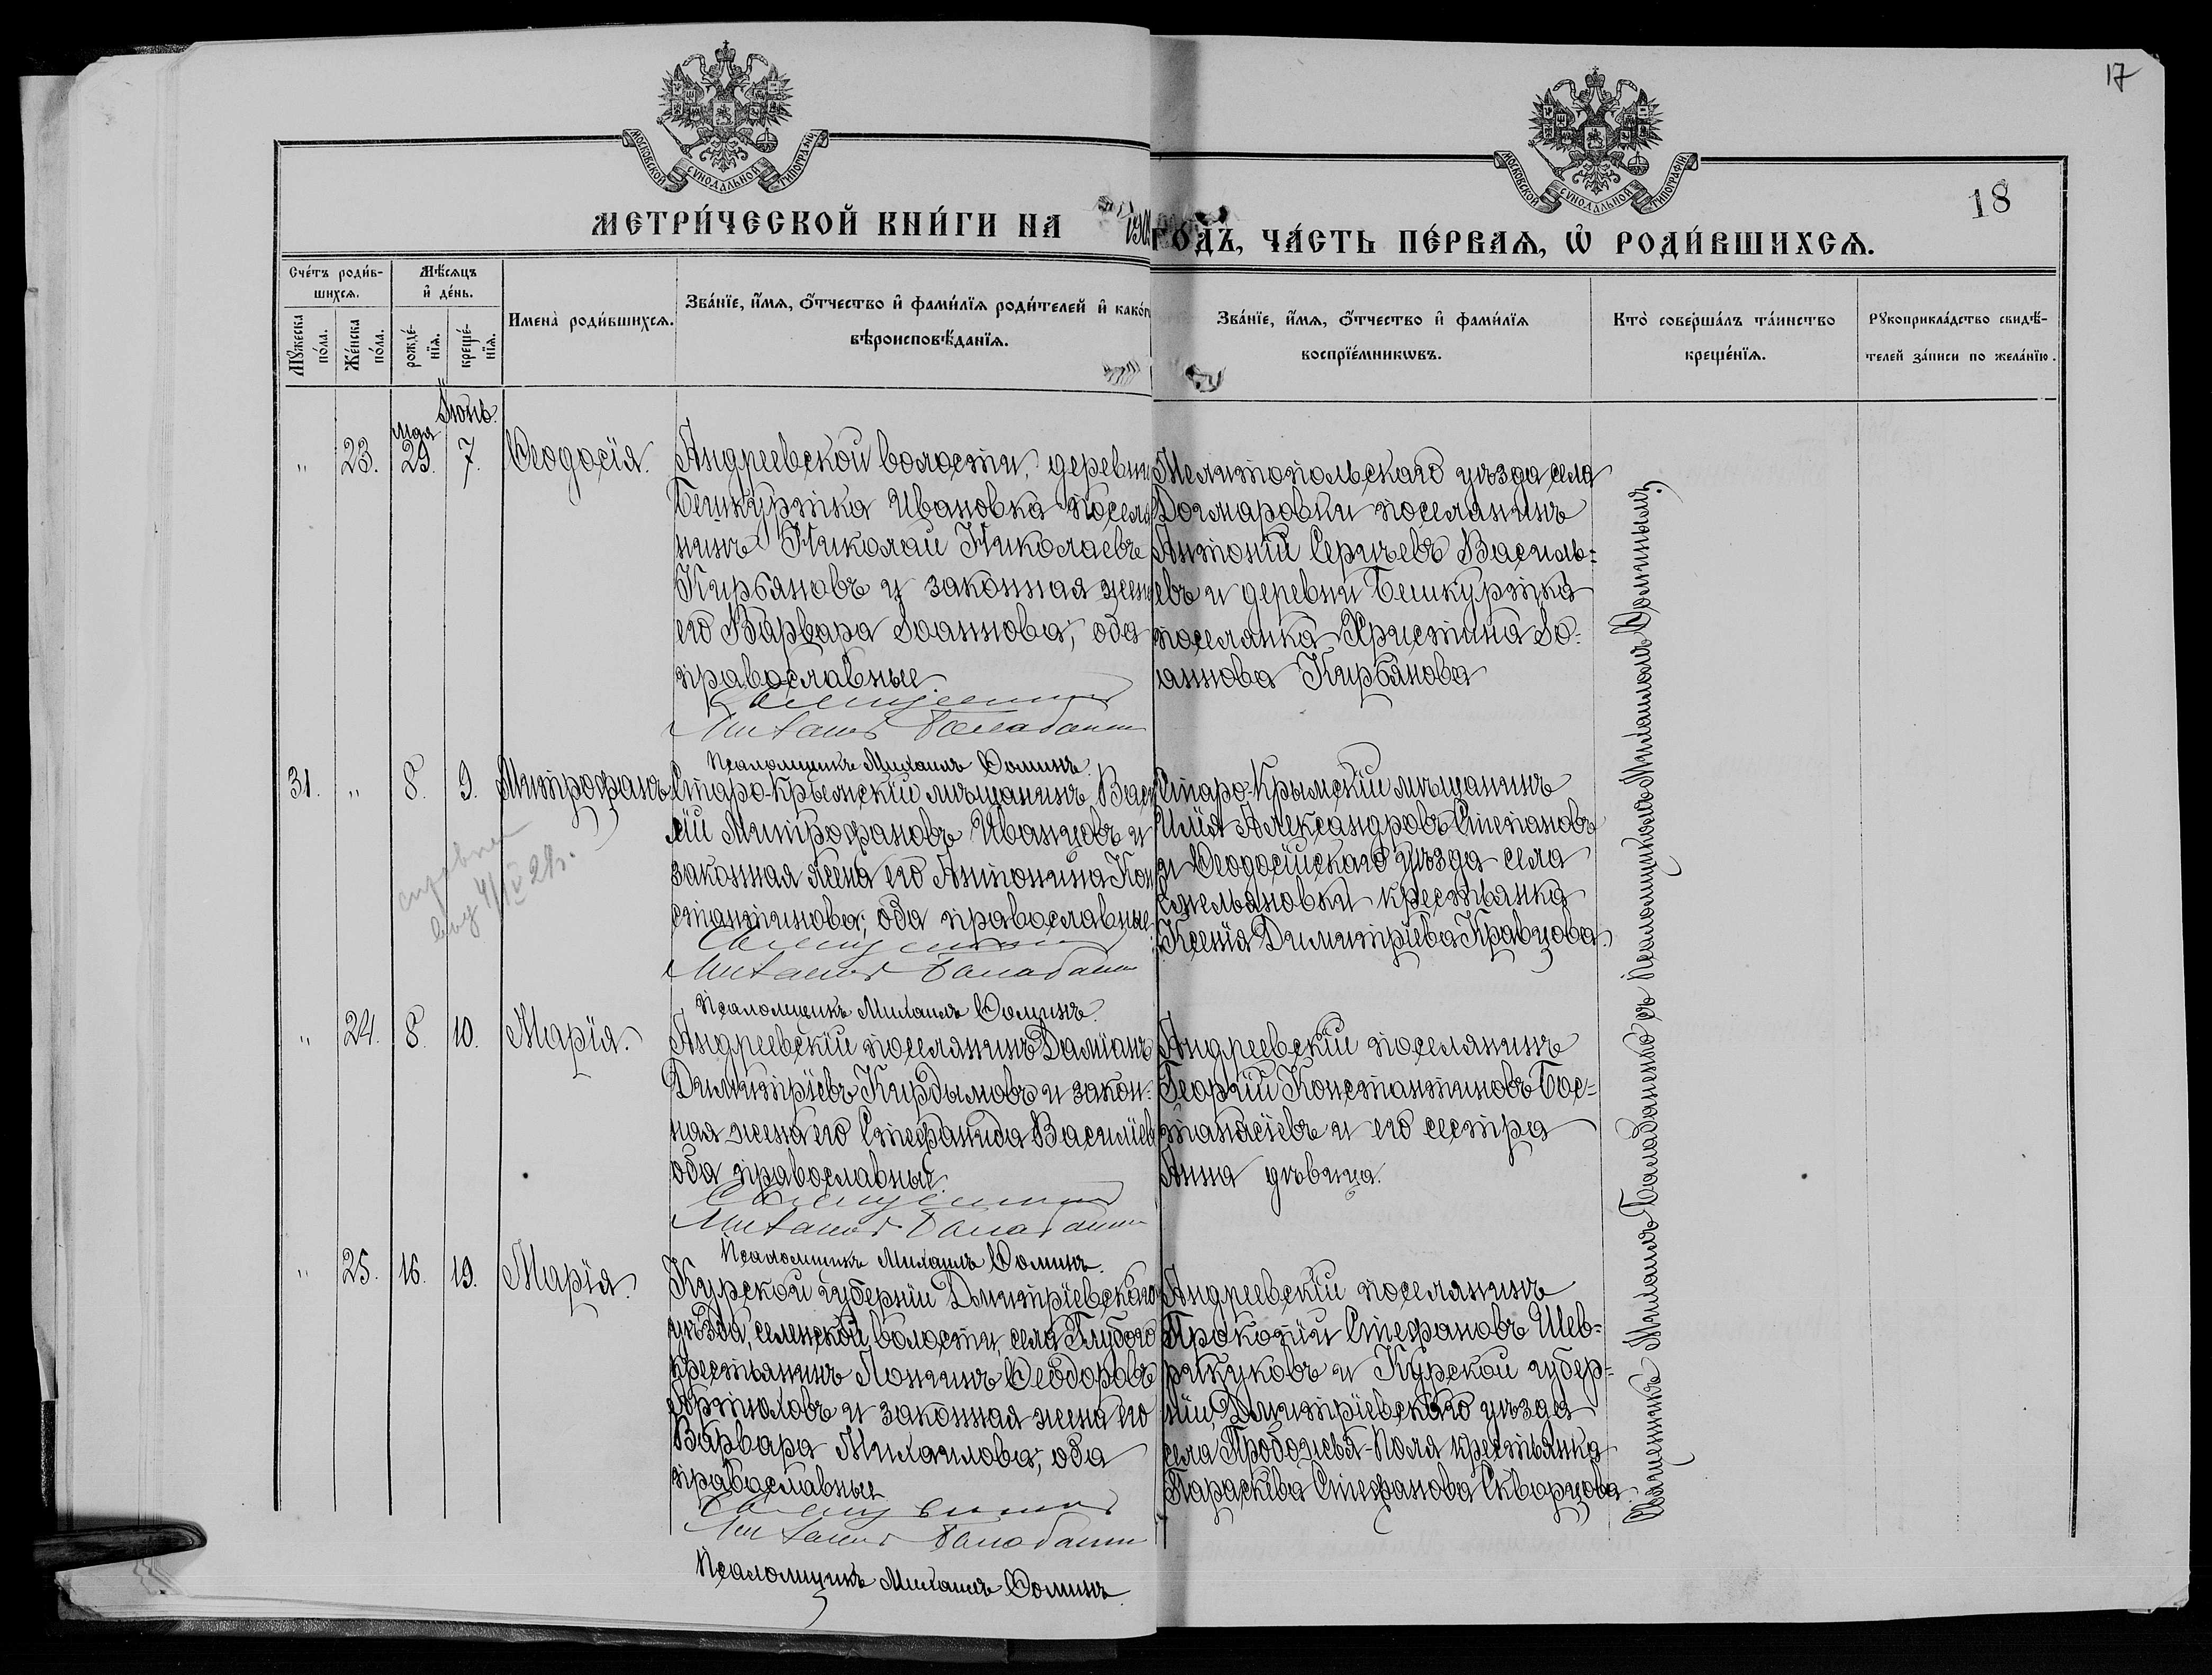 17
18
МОСКОВСКОЙ СѴНОДАЛЬНОЙ ТИПОГРАФІИ
МОСКОВСКОЙ СѴНОДАЛЬНОЙ ТИПОГРАФІИ
МЕТРИ́ЧЕСКОЙ КНИ́ГИ НА
ГО́ДЪ, ЧА́СТЬ ПЕ́РВАЯ, Ѡ҆ РОДИ́ВШИХСЯ.
Сче́тъ роди́в-
шихся.
Мꙋжеска по́ла.
Же́нска по́ла.
Мѣ́сяцъ
и҆ де́нь.
рожде́-
нїя.
креще́-
нїя.
Имена̀ роди́вшихся.
Зва́нїе, и҆́мя, ѻ҆́тчество и҆ фами́лїя роди́телей и҆ како́г
вѣроисповѣ́данїя.
Зва́нїе, и҆́мя, ѻ҆́тчество и҆ фами́лїя
воспрїе́мникѡвъ.
Кто̀ соверша́лъ та́инство
креще́нїя.
Рꙋкоприкла́дство свидѣ́-
телей за́писи по жела́нїю.
Мая
Іюнь
" 23. 29. 7. Ѳеодосія.
Андреевской волости, деревни
Бешкуртка Ивановка поселя
нинъ Николай Николаевъ
Кирбяновъ и законная жена
его Варвара Іоаннова; оба
православные
Священникъ
Михаилъ Балабаненко
Псаломщикъ Михаилъ Ѳоминъ.
Мелитопольскаго уѣзда села
Догмаровки поселянинъ
Антоній Сергіевъ Василь-
евъ и деревни Бешкуртка
поселянка Христина Іо-
аннова Кирбянова
31. " 8. 9. Митрофанъ
Старо-Крымскій мѣщанинъ Васи
лій Митрофановъ Иванцовъ и
законная жена его Антонина Кон
стантинова; оба православные
Священникъ
Михаилъ Балабаненко
Псаломщикъ Михаилъ Ѳоминъ.
Старо-Крымскій мѣщанинъ
Илія Александровъ Степановъ
и Ѳеодосійскаго уѣзда села
Емельяновки крестьянка
Ксенія Димитріева Кравцова.
" 24. 8. 10. Марія.
Андреевскій поселянинъ Даміанъ
Димитріевъ Кирдымовъ и закон-
ная жена его Стефанида Василіев
оба православные
Священникъ
Михаилъ Балабаненко
Псаломщикъ Михаилъ Ѳоминъ.
Андреевскій поселянинъ
Георгій Константиновъ Бос-
танасіевъ и его сестра
Анна дѣвица.
" 25. 16. 19. Марія.
Курской губерніи Дмитріевскаго
уѣзда, селенской волости, села Глубого
крестьянинъ Лонгинъ Ѳеодоровъ
и законная жена его
Варвара Михаилова; оба
православные
Священникъ
Михаилъ Балабаненко
Псаломщикъ Михаилъ Ѳоминъ.
Андреевскій поселянинъ
Прокопій Стефановъ Шев-
рикуковъ и Курской губер-
ніи, Дмитріевскаго уѣзда
села Поля крестьянка
Параскева Стефанова Скворцова.
Священникъ Михаилъ Балабаненко съ Псаломщикомъ Михаиломъ Ѳоминымъ